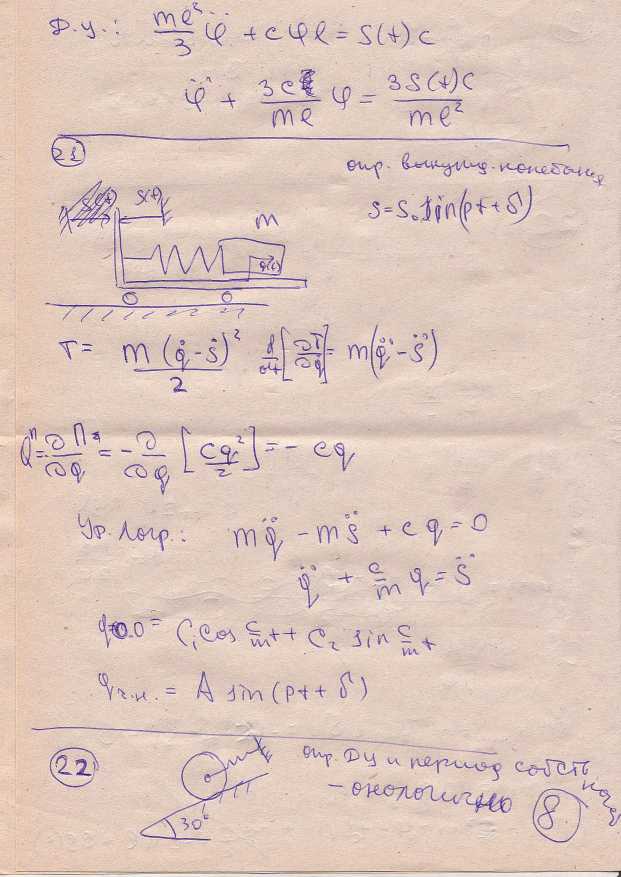 Д.у.: mℓ²/3 φ̈ + cφℓ = S(t)c
φ̈ + 3c/mℓ φ = 3S(t)c/mℓ²
21
опр. вынужд. колебания
S(t) S = S₀ sin(pt + δ)
m
T = m(q̇ - ṡ)²/2 d/dt[∂T/∂q̇] = m(q̈ - s̈)
Qᴨ = ∂П/∂q = - ∂/∂q [cq²/2] = - cq
Ур. Лагр.: mq̈ - ms̈ + cq = 0
q̈ + c/m q = s̈
q o.o = C₁ cos c/m t + C₂ sin c/m t
q ч.н. = A sin(pt + δ)
22
опр. ДУ и период собств
- онологично 8
30°